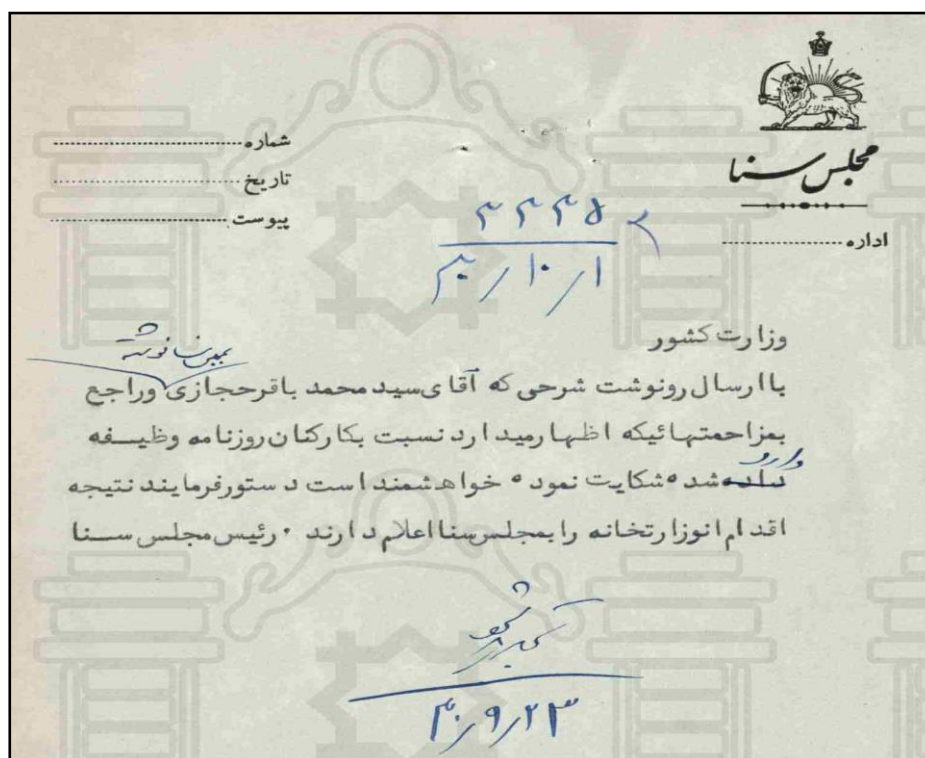 مجلس سنا
شماره
تاریخ
پیوست
اداره
۳۳۳۵
وزارت کشور
بمجلس سنا نوشته
با ارسال رونوشت شرحی که آقای سید محمد باقر حجازی وراجع
بمزاحمتهائیکه اظهار میدارد نسبت بکارکنان روزنامه وظیفه
وارد
شده شکایت نموده خواهشمند است دستور فرمایند نتیجه
اقدام انوزارتخانه را بمجلس سنا اعلام دارند ۰ رئیس مجلس سنا
۴۰/۹/۲۳